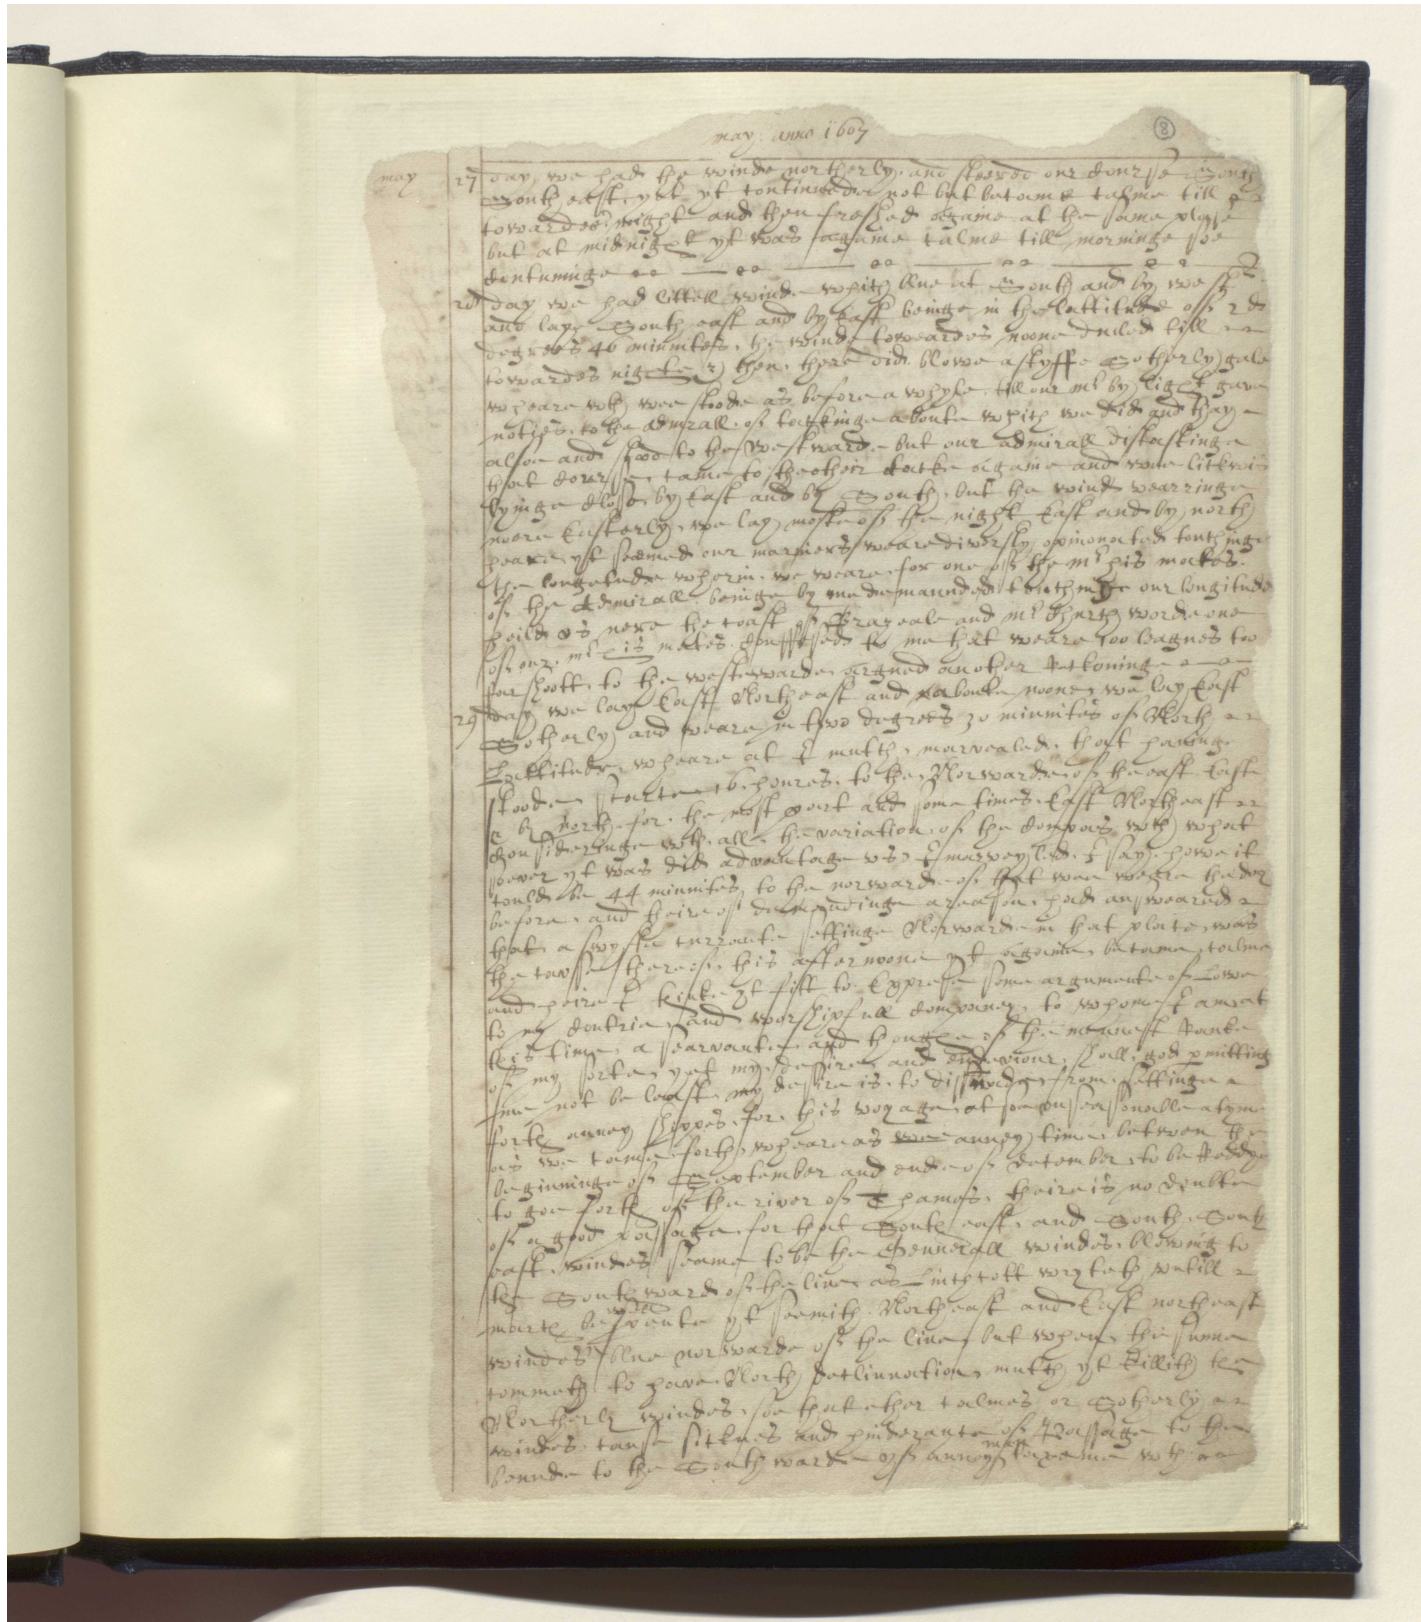 may anno 1607
8
may 27 day we had the winde northerly and steered our Course South
South east, yet yt continued not but became calme till
towardes night and then freshed againe at the same place
but at midnight yt was againe calme till morninge soe
contuninge
28 day we had littell winde which blue at South and by west
and laye South east and by East beinge in the lattitude of 2 de
degrees 46 minnites, the winde towardes noone till
towardes nighte then there did blowe a styffe Sotherly gale
wheare wth wee stoode as before a whyle till our mr by light gave
notis to the Admirall of tackinge aboute which we did and thay
alsoe and stood to the Westwarde but our admirall distastinge
that course came to the other tacke againe and wee likwis
lyinge close by East and by South, but the wind wearringe
more Easterly we lay moste of the night East and by north
heare yt seemed our marriners weare diversly opinonated touchinge
the longetude wherin we weare for one of the mr his mates
of the Admirall beinge by me demaunded touchinge our longitude
heild us nere the coast of Brazeale and mr Churchworde one
of our mr his mates Confessed to me that weare 100 leagues too
far shoott to the westwarde, argued another reckoninge
29 day we laye East Northeast and aboute noone we lay East
Sotherly and weare in two degrees 30 minnites of North
Lattitude, wheare at I mutch marvealed that having
stoode scarce 16 houres to the Norwarde of the east East
& by north for the most part and some times East Northeast
Consideringe wth all the variation of the Compas wth what
soever yt was did advantage us I marveyled I say howe it
could be 44 minnites to the norwarde of that wee weare the day
before, and theire of demandinge a reason, had answeared
that a swyfte currante settinge Norwarde in that place was
the cause thereof, this afternoone yt againe became calme
and heire I thinke yt fitt to Expresse some argumente of Love
to my Contrie and worshipfull Company, to whome I am at
this time a searvante and though of the meanest ranke
of my sorte, yet my desire and endeviour shall god permitting
me not be leaste, my desire is to disswade from settinge
forth anney shippes for this voyage at soe unseasonable a tyme
as we came forth, wheareas anney time betwen the
beginninge of September and ende of December to be reddy
to goe forth of the river of Thames, theire is no doubte
of a good passage for that South east and South South
east windes seame to be the Gennerall windes blowing to
the Southward of the line as Linchcott wryteth untill
march be spente yt seemith Northeast and East northeast
windes blue norwarde of the line, but when the sunne
commeth to have North declinnation, mutch yt killith the
Northerly windes, soe that ether calmes or Sotherly
windes cause sicknes and hinderance of Passage to the
bounde to the Southwarde of anney wth